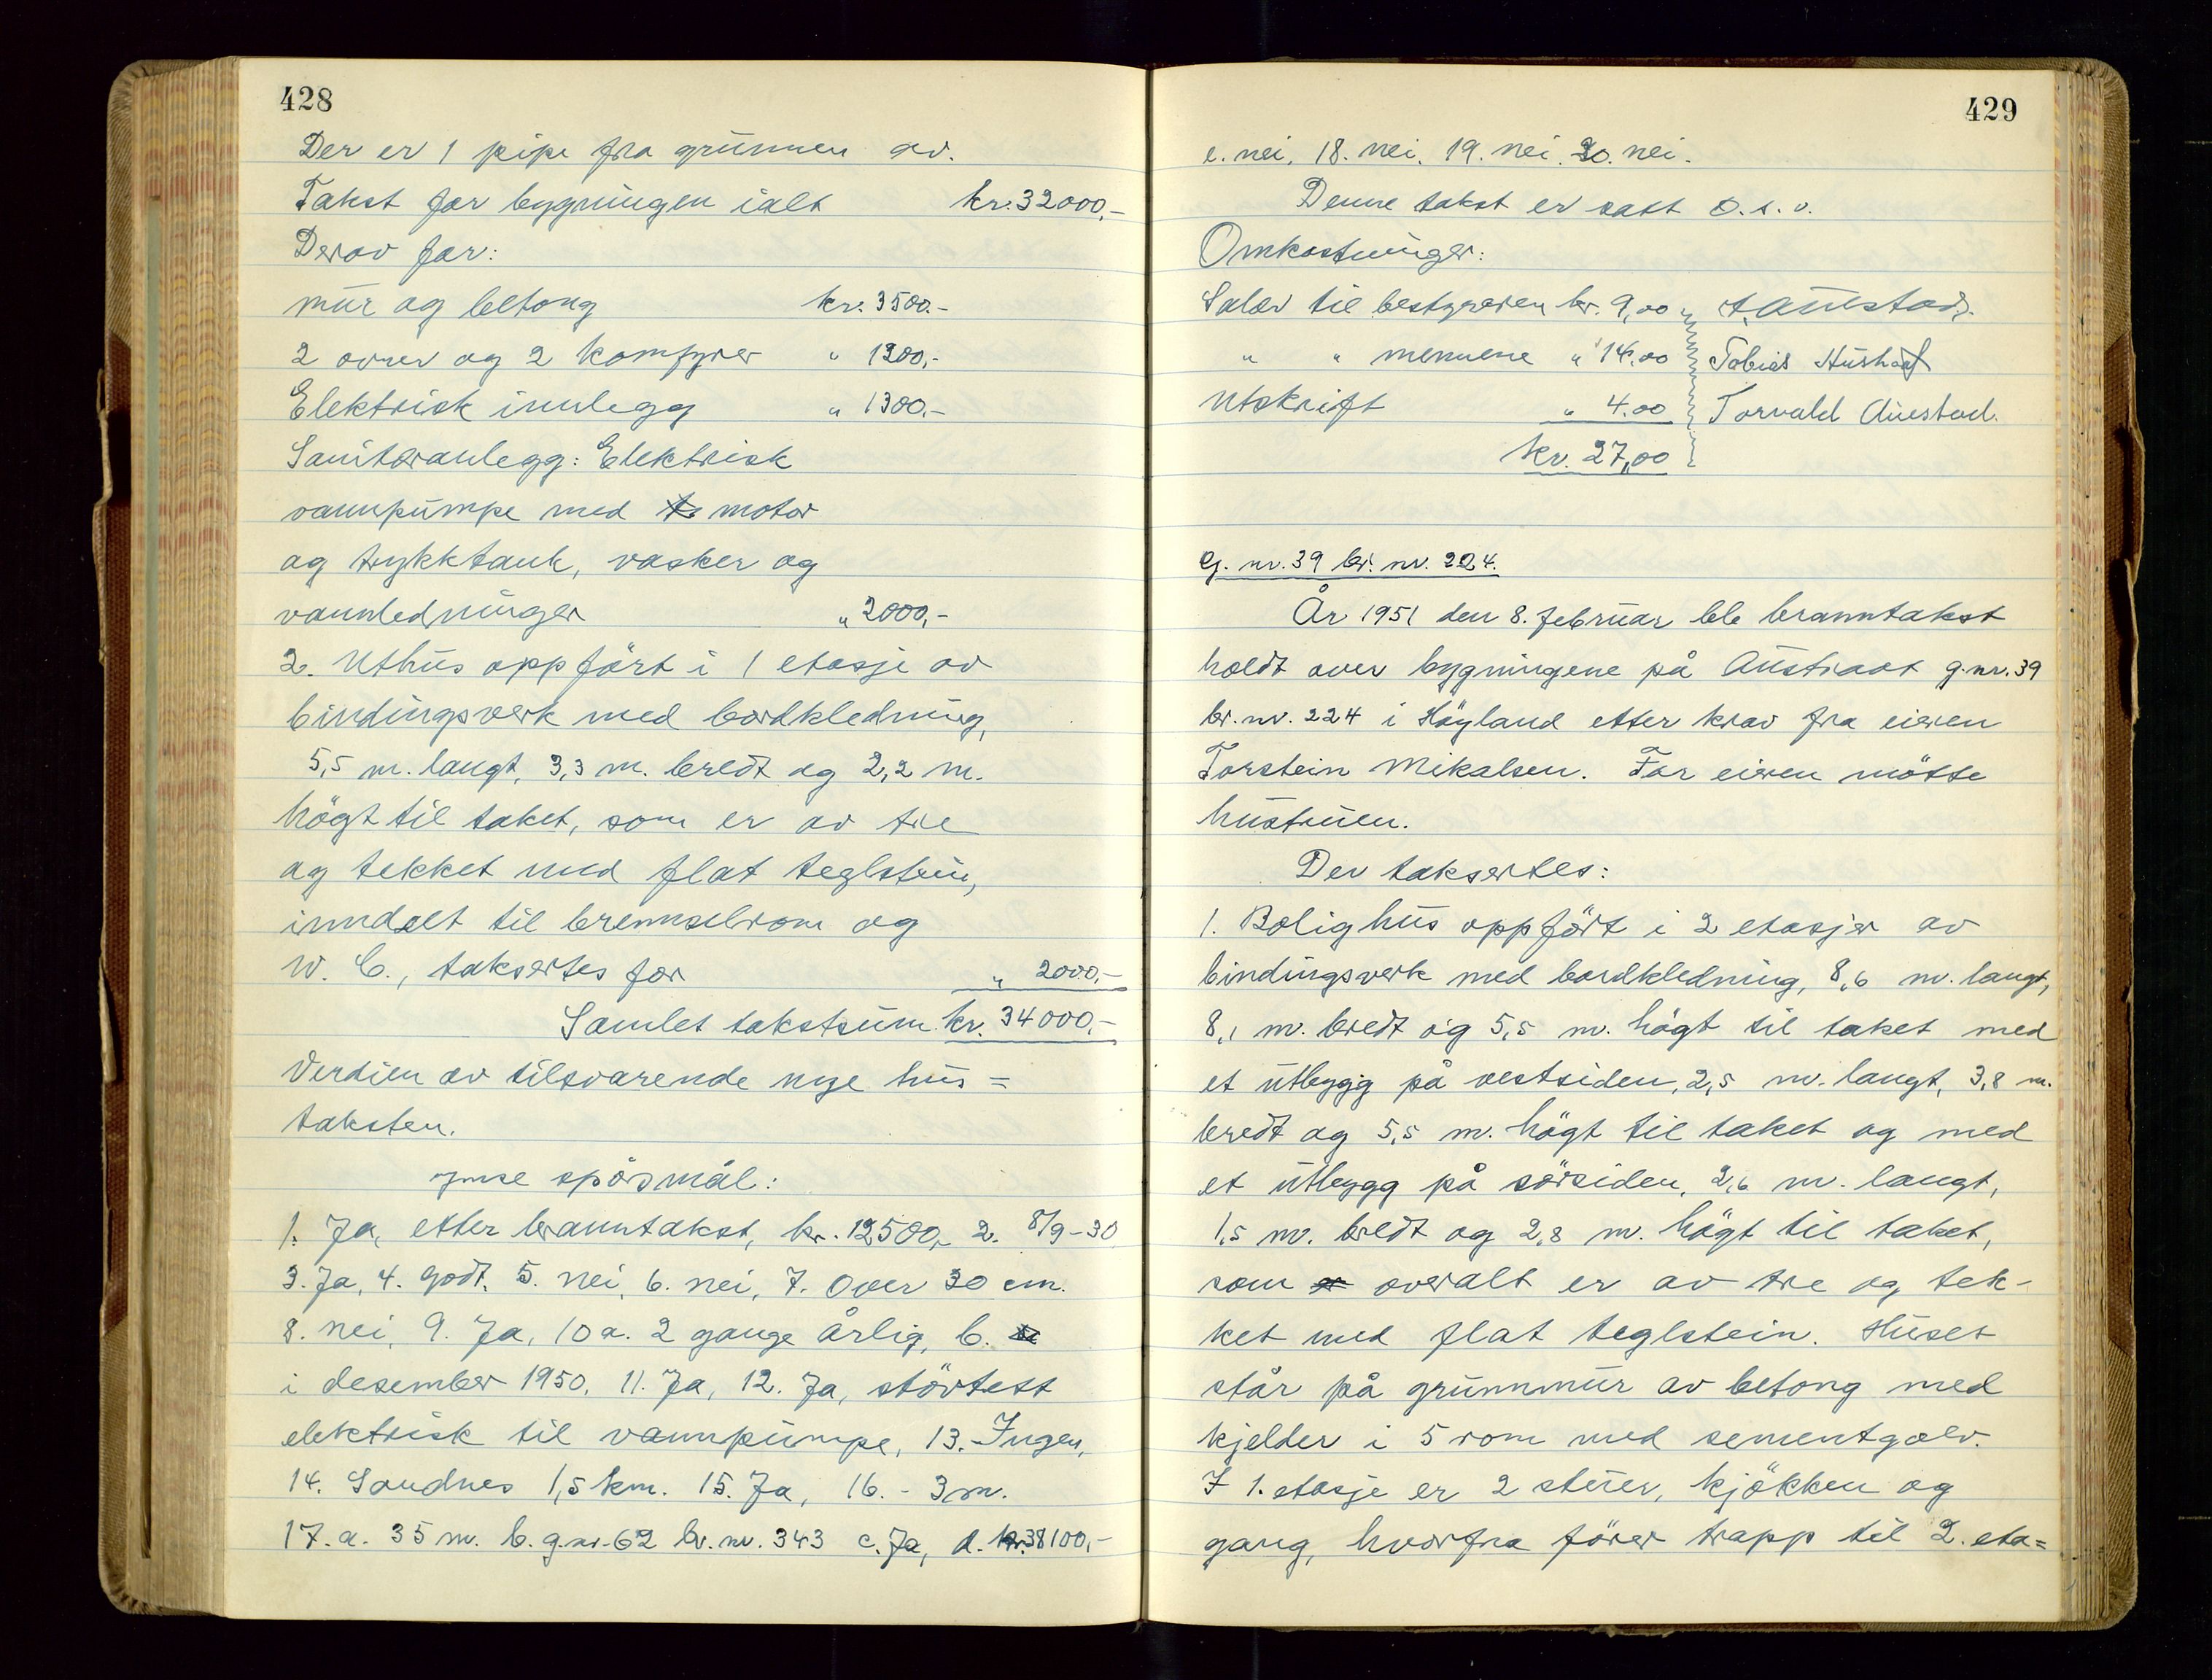 428
Der er 1 pipe fra grunnen av.
Takst for bygningen ialt kr. 32000,-
Derav for:
mur og betong kr. 3500.-
2 ovner og 2 komfyrer " 1200,-
Elektrisk innlegg " 1300,-
Sanitæranlegg: Elektrisk
vannpumpe med motor
og trykktank, vasker og
vannledninger " 2000,-
2. Uthus oppfört i 1 etasje av
bindingsverk med bordkledning,
5,5 m. langt, 3,3 m. bredt og 2,2 m.
högt til taket, som er av tre
og tekket med flat teglstein,
inndelt til brennselrom og
W. C., taksertes for " 2000,-
Samlet takstsum kr. 34000,-
Verdien av tilsvarende nye hus =
taksten.
Ymse spörsmål:
1. Ja, etter branntakst, kr. 12500,- 2. 8/9-30
3. Ja, 4. godt. 5. nei, 6. nei, 7. Over 30 cm.
8. nei, 9. Ja, 10 a. 2 gange årlig, b.
i desember 1950. 11. Ja, 12. Ja, störtest
elektrisk til vannpumpe, 13. Ingen,
14. Sandnes 1,5 km. 15. Ja, 16. - 3 m.
17. a. 35 m. b. g.nr. 62 br. nr. 343 c. Ja, d. kr. 38100,-
429
e. nei, 18. nei, 19. nei. 20. nei.
Denne takst er satt o. s. v.
Omkostninger:
Salær til bestyreren kr. 9,00 Auestad.
" " mennene " 14.00 Tobias Hushof
Utskrift " 4.00 Torvald Auestad.
kr. 27,00
G. nr. 39 br. nr. 224.
År 1951 den 8. februar ble branntakst
holdt over bygningene på Austraat g.nr. 39
br. nr. 224 i Höyland etter krav fra eieren
Torstein Mikalsen. For eieren mötte
hustruen.
Der taksertes:
1. Bolighus oppfört i 2 etasjer av
bindingsverk med bordkledning, 8,6 m. langt,
8,1 m. bredt og 5,5 m. högt til taket med
et utbygg på vestsiden, 2,5 m. langt, 3,8 m.
bredt og 5,5 m. högt til taket og med
et utbygg på sörsiden, 2,6 m. langt,
1,5 m. bredt og 2,8 m. högt til taket,
som overalt er av tre og tek-
ket med flat teglstein. Huset
står på grunnmur av betong med
kjelder i 5 rom med sementgolv.
I 1. etasje er 2 stuer, kjökken og
gang, hvorfra förer trapp til 2. eta=